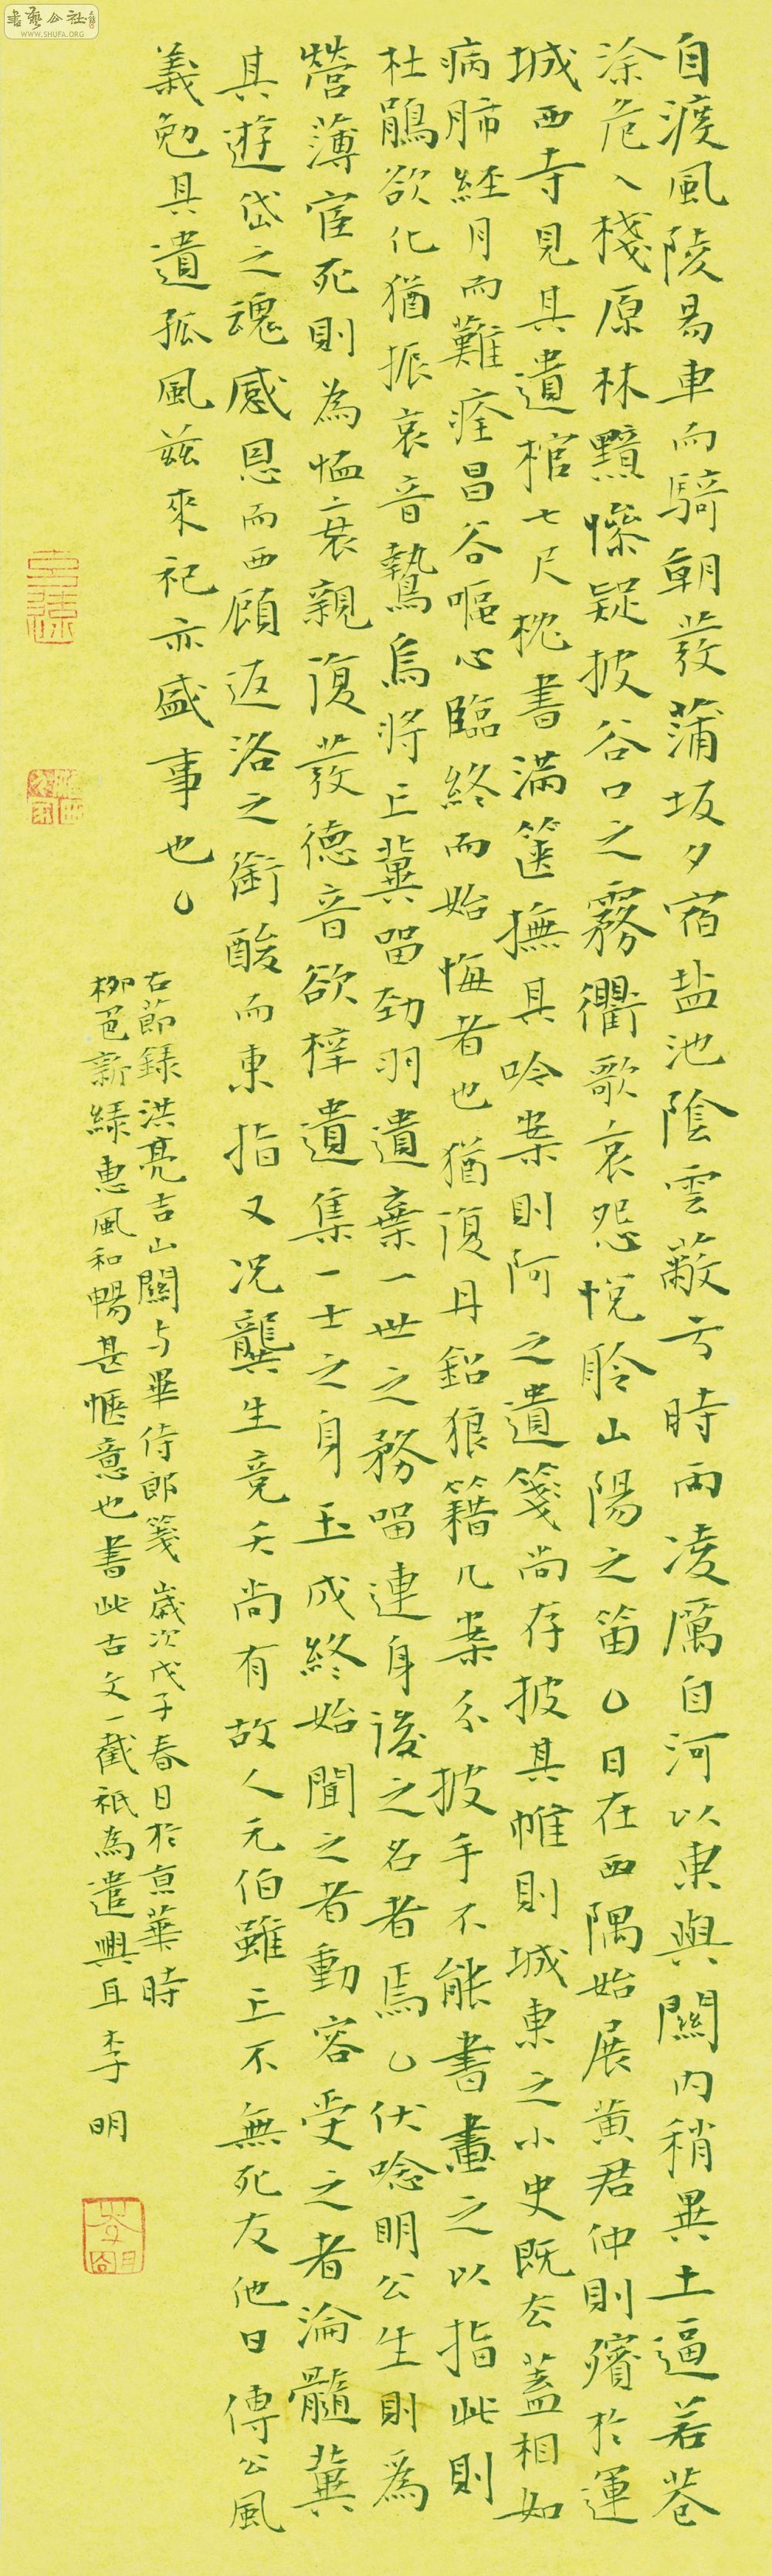 自渡風陵易車而騎朝發蒲坂夕宿盐池陰雲蔽亏時雨凌厲自河以東與關内稍異土逼若巷
涂危入棧原林黯慘疑披谷口之霧衢歌哀怨恍聆山陽之笛乚日在西隅始展黄君仲則殯於運
城西寺見其遺棺七尺枕書滿篋撫其吟案則阿之遺箋尚存披其帷則城東之小史既去蓋相如
病肺經月而難痊昌谷嘔心臨終而始悔者也猶復丹鉛狼籍几案紛披手不能書畫之以指此則
杜鵑欲化猶振哀音鷙鳥將亡冀留劲羽遺棄一世之務留連身後之名者焉乚伏唸明公生則爲
營薄宦死則為恤衰親復發德音欲梓遺集一士之身玉成終始聞之者動容受之者淪髓冀
其遊岱之魂感恩而西顧返洛之銜酸而東指又况龔生竟夭尚有故人元伯雖亡不無死友他日傳公風
義勉其遺孤風兹來祀亦盛事也乚
右節録洪亮吉山關与畢侍郎箋歲次戊子春日於京華時
柳色新緑惠風和暢甚惬意也書此古文一截祇為遣興耳李明
書藝公社
WWW.SHUFA.ORG